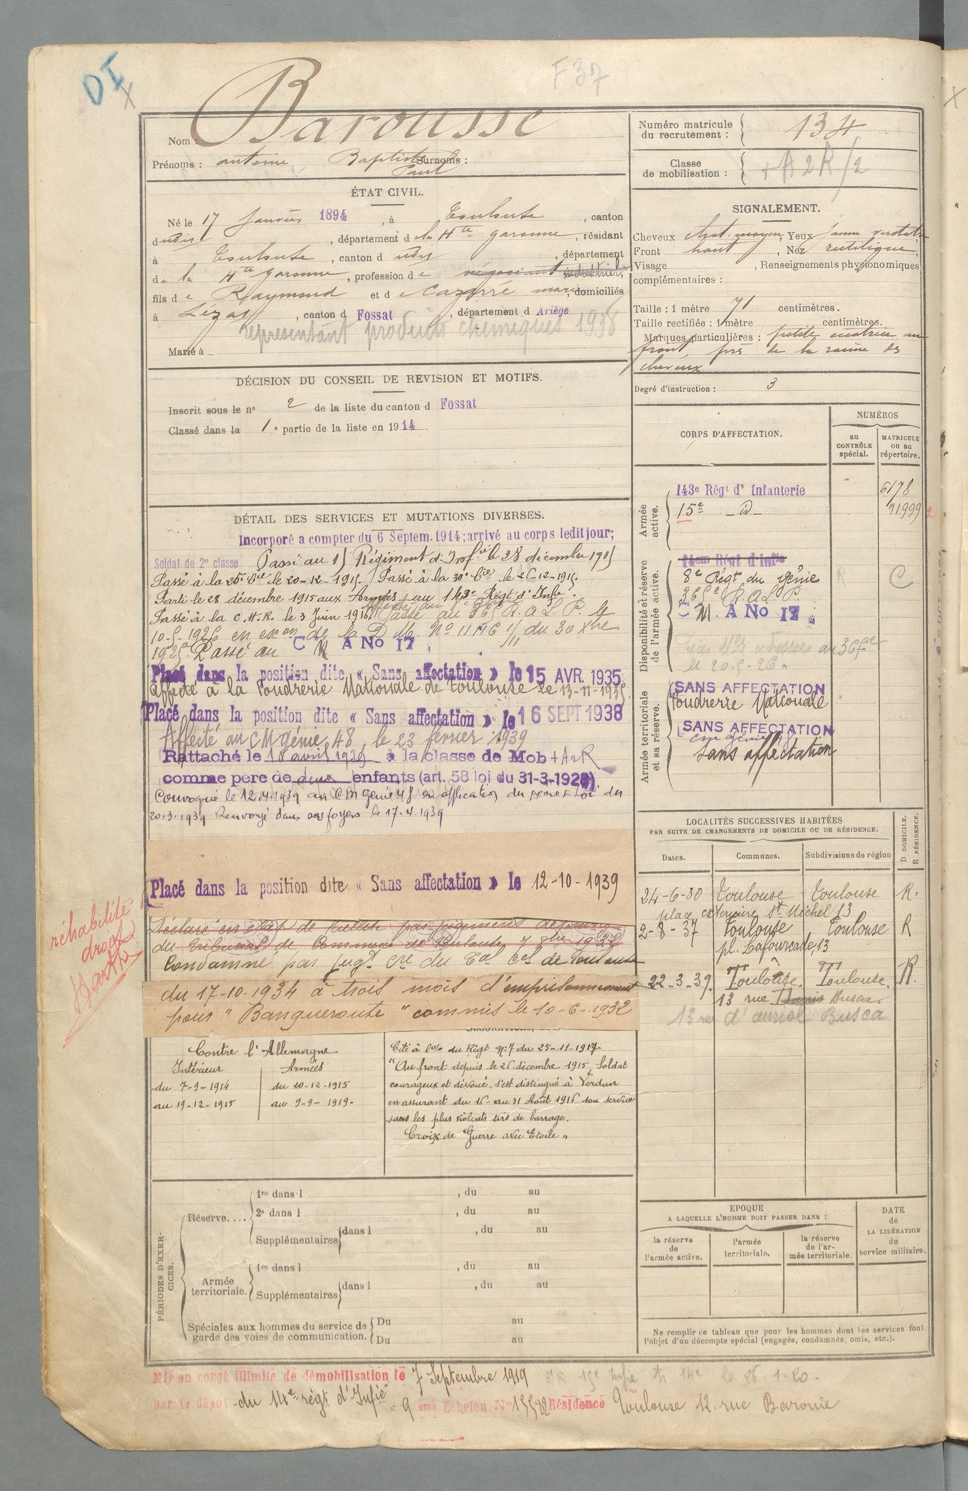 DI
F37
X
Nom : Barousse
Prénoms : antoine Baptiste Surnoms :
Paul
ÉTAT CIVIL.
Né le 17 Janvier 1894, à Toulouse, canton
dudit, département d e la Hte garonne, résidant
à Toulouse, canton d udit, département
de la Hte garonne, profession de négociant industriel,
fils de Raymond et de Cazarré marie, domiciliés
à Lézat, canton d Fossat, département d Ariège
représentant produits chimiques 1938
Marié à
DÉCISION DU CONSEIL DE REVISION ET MOTIFS.
Inscrit sous le n° 2 de la liste du canton d Fossat
Classé dans la 1e partie de la liste en 1914.
DÉTAIL DES SERVICES ET MUTATIONS DIVERSES.
Incorporé a compter du 6 Septem. 1914; arrivé au corps ledit jour;
Soldat de 2e classe Passé au 15 Régiment d'Infie le 28 décembre 1915
Passé à la 25e Cie le 20-12-1915. Passé à la 30e Cie le 26-12-1915.
Parti le 28 décembre 1915 aux Armées au 143e Régt d'Infie.
Passé à la C.H.R. le 3 Juin 1916. Passé au P.O.A.L.P. le
10-5-1926 en exon de la D.M. No 11116 1/11 du 30 Xbre
1925. Passé au C M A No 17
Placé dans la position dite « Sans affectation » le 15 AVR. 1935
affecté à la Poudrerie Nationale de Toulouse le 13-11-1935
Placé dans la position dite « Sans affectation » le 16 SEPT 1938
Affecté au CM Génie 48 le 23 février 1939
Rattaché le 18 avril 1939 à la classe de Mob + A2R
comme père de deux enfants (art. 58 loi du 31-3-1928)
Convoqué le 12.4.1939 au CM Génie 48 en application du décret loi du
20.3.1939 Renvoyé dans ses foyers le 17.4.1939
Placé dans la position dite « Sans affectation » le 12-10-1939
Déclaré en état de faillite par jugement
du Tribunal de Commerce de Toulouse
Condamné par Jugt de Toulouse
du 17-10-1934 à trois mois d'emprisonnement
pour "Banqueroute" commis le 10-6-1932
réhabilité
droit
Contre l'Allemagne
Intérieur Armées
du 7-9-1914 du 20-12-1915
au 19-12-1915 au 9-9-1919.
Cité à l'ordre du Régt No 7 du 25-11-1917
"Au front depuis le 26 décembre 1915, Soldat
courageux et dévoué, s'est distingué à Verdun
en assurant du 16 au 31 Août 1916 son service
sous les plus violents tirs de barrage.
Croix de Guerre avec Etoile "
PÉRIODES D'EXERCICES.
Réserve.... 1re dans l , du au
2e dans l , du au
Supplémentaires dans l , du au
Armée territoriale. 1re dans l , du au
Supplémentaires dans l , du au
Spéciales aux hommes du service de garde des voies de communication. Du au
Du au
Mis en congé illimité de démobilisation le 7 Septembre 1919
par le dépôt du 14e régt d'Infie 9 ème Echelon No 15582 Résidence Toulouse 12 rue Baronie
Numéro matricule
du recrutement : 134
Classe
de mobilisation : + A 2R/2
SIGNALEMENT.
Cheveux chat. moyen, Yeux
Front haut, Nez rectiligne,
Visage , Renseignements physionomiques
complémentaires :
Taille : 1 mètre 71 centimètres.
Taille rectifiée : 1 mètre centimètres.
Marques particulières : petite cicatrice au
front, près de la racine des
cheveux
Degré d'instruction : 3
CORPS D'AFFECTATION.
NUMÉROS
au CONTRÔLE spécial.
MATRICULE ou au répertoire.
Armée active.
143e Régt d'Infanterie 6178
15e -d- 11999
Disponibilité et réserve de l'armée active.
14eme Régt d'Infie
8e Régt du génie C
P.O.A.L.P.
C M. A No 17
le 20-5-26
Armée territoriale et sa réserve.
SANS AFFECTATION
Poudrerie Nationale
SANS AFFECTATION
Sans affectation
LOCALITÉS SUCCESSIVES HABITÉES
PAR SUITE DE CHANGEMENTS DE DOMICILE OU DE RÉSIDENCE.
D. DOMICILE. R. RÉSIDENCE.
Dates. Communes. Subdivisions de région
24-6-30 Toulouse Toulouse R.
place St Michel 13
2-8-37 Toulouse Toulouse R
pl. Lafourcade 13
22-3-39 Toulouse Toulouse. R.
13 rue Busca.
13 rue d'auriol Busca
EPOQUE
A LAQUELLE L'HOMME DOIT PASSER DANS :
DATE
de
LA LIBÉRATION
du
service militaire.
la réserve de l'armée active.
l'armée territoriale.
la réserve de l'armée territoriale.
Ne remplir ce tableau que pour les hommes dont les services font
l'objet d'un décompte spécial (engagés, condamnés, omis, etc.).